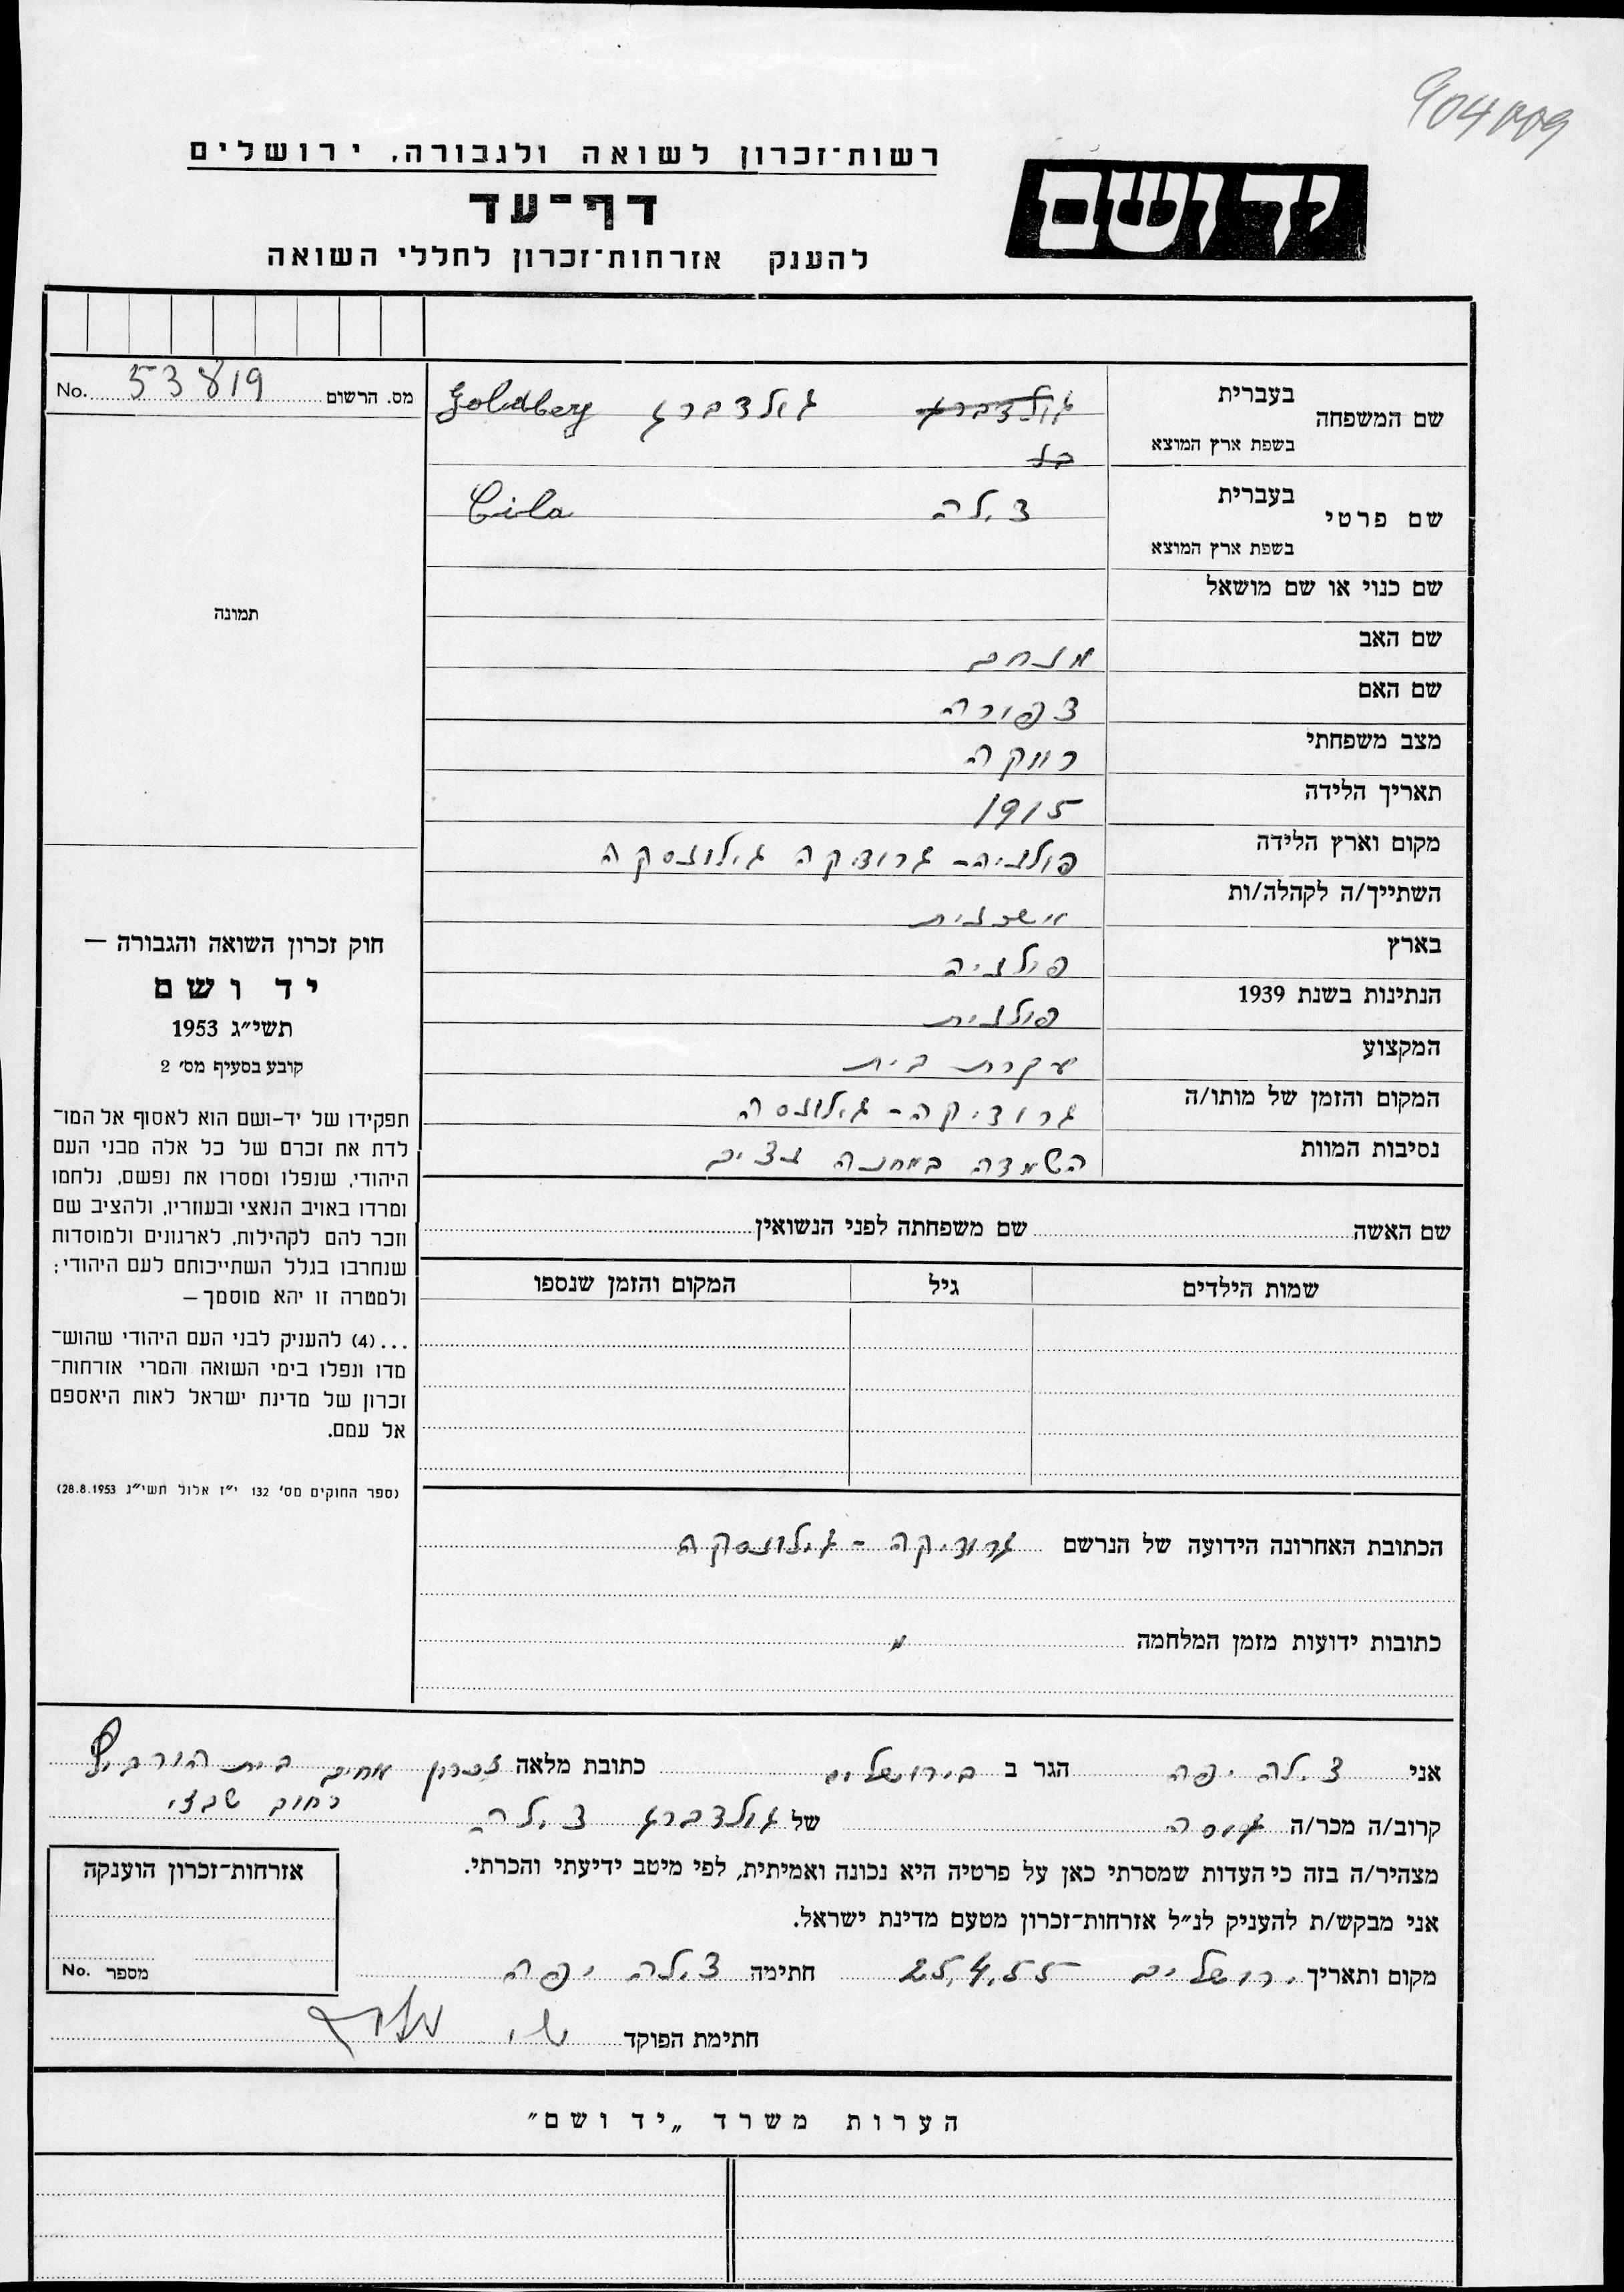 רשות־זכרון לשואה ולגבורה, ירושלים
יד ושם
דף־עד
להענק אזרחות־זכרון לחללי השואה
מס. הרשום 53819 No.
שם המשפחה בעברית גולדברג גולדברג Goldberg
בשפת ארץ המוצא
שם פרטי בעברית צילה Cila
בשפת ארץ המוצא
שם כנוי או שם מושאל
תמונה
שם האב מנחם
שם האם צפורה
מצב משפחתי רווקה
תאריך הלידה 1915
מקום וארץ הלידה פולניה-
השתייך/ה לקהלה/ות
בארץ פולניה
הנתינות בשנת 1939 פולנית
המקצוע עקרת בית
המקום והזמן של מותו/ה
נסיבות המוות השמדה במחנה נצים
חוק זכרון השואה והגבורה —
יד ושם
תשי״ג 1953
קובע בסעיף מס׳ 2
תפקידו של יד-ושם הוא לאסוף אל המו־
לדת את זכרם של כל אלה מבני העם
היהודי, שנפלו ומסרו את נפשם, נלחמו
ומרדו באויב הנאצי ובעוזריו, ולהציב שם
וזכר להם לקהילות, לארגונים ולמוסדות
שנחרבו בגלל השתייכותם לעם היהודי;
ולמטרה זו יהא מוסמך —
...(4) להעניק לבני העם היהודי שהוש־
מדו ונפלו בימי השואה והמרי אזרחות־
זכרון של מדינת ישראל לאות היאספם
אל עמם.
(ספר החוקים מס׳ 132 י״ז אלול תשי״ג 28.8.1953)
שם האשה שם משפחתה לפני הנשואין
שמות הילדים גיל המקום והזמן שנספו
הכתובת האחרונה הידועה של הנרשם
כתובות ידועות מזמן המלחמה "
אני צילה יפה הגר ב בירושלים כתובת מלאה זכרון אחים בית
רחוב שבזי
קרוב/ה מכר/ה גיסה של גולדברג צילה
מצהיר/ה בזה כי העדות שמסרתי כאן על פרטיה היא נכונה ואמיתית, לפי מיטב ידיעתי והכרתי.
אני מבקש/ת להעניק לנ״ל אזרחות־זכרון מטעם מדינת ישראל.
מקום ותאריך ירושלים 25.4.55 חתימה צילה יפה
חתימת הפוקד
אזרחות־זכרון הוענקה
מספר No.
הערות משרד „יד ושם״